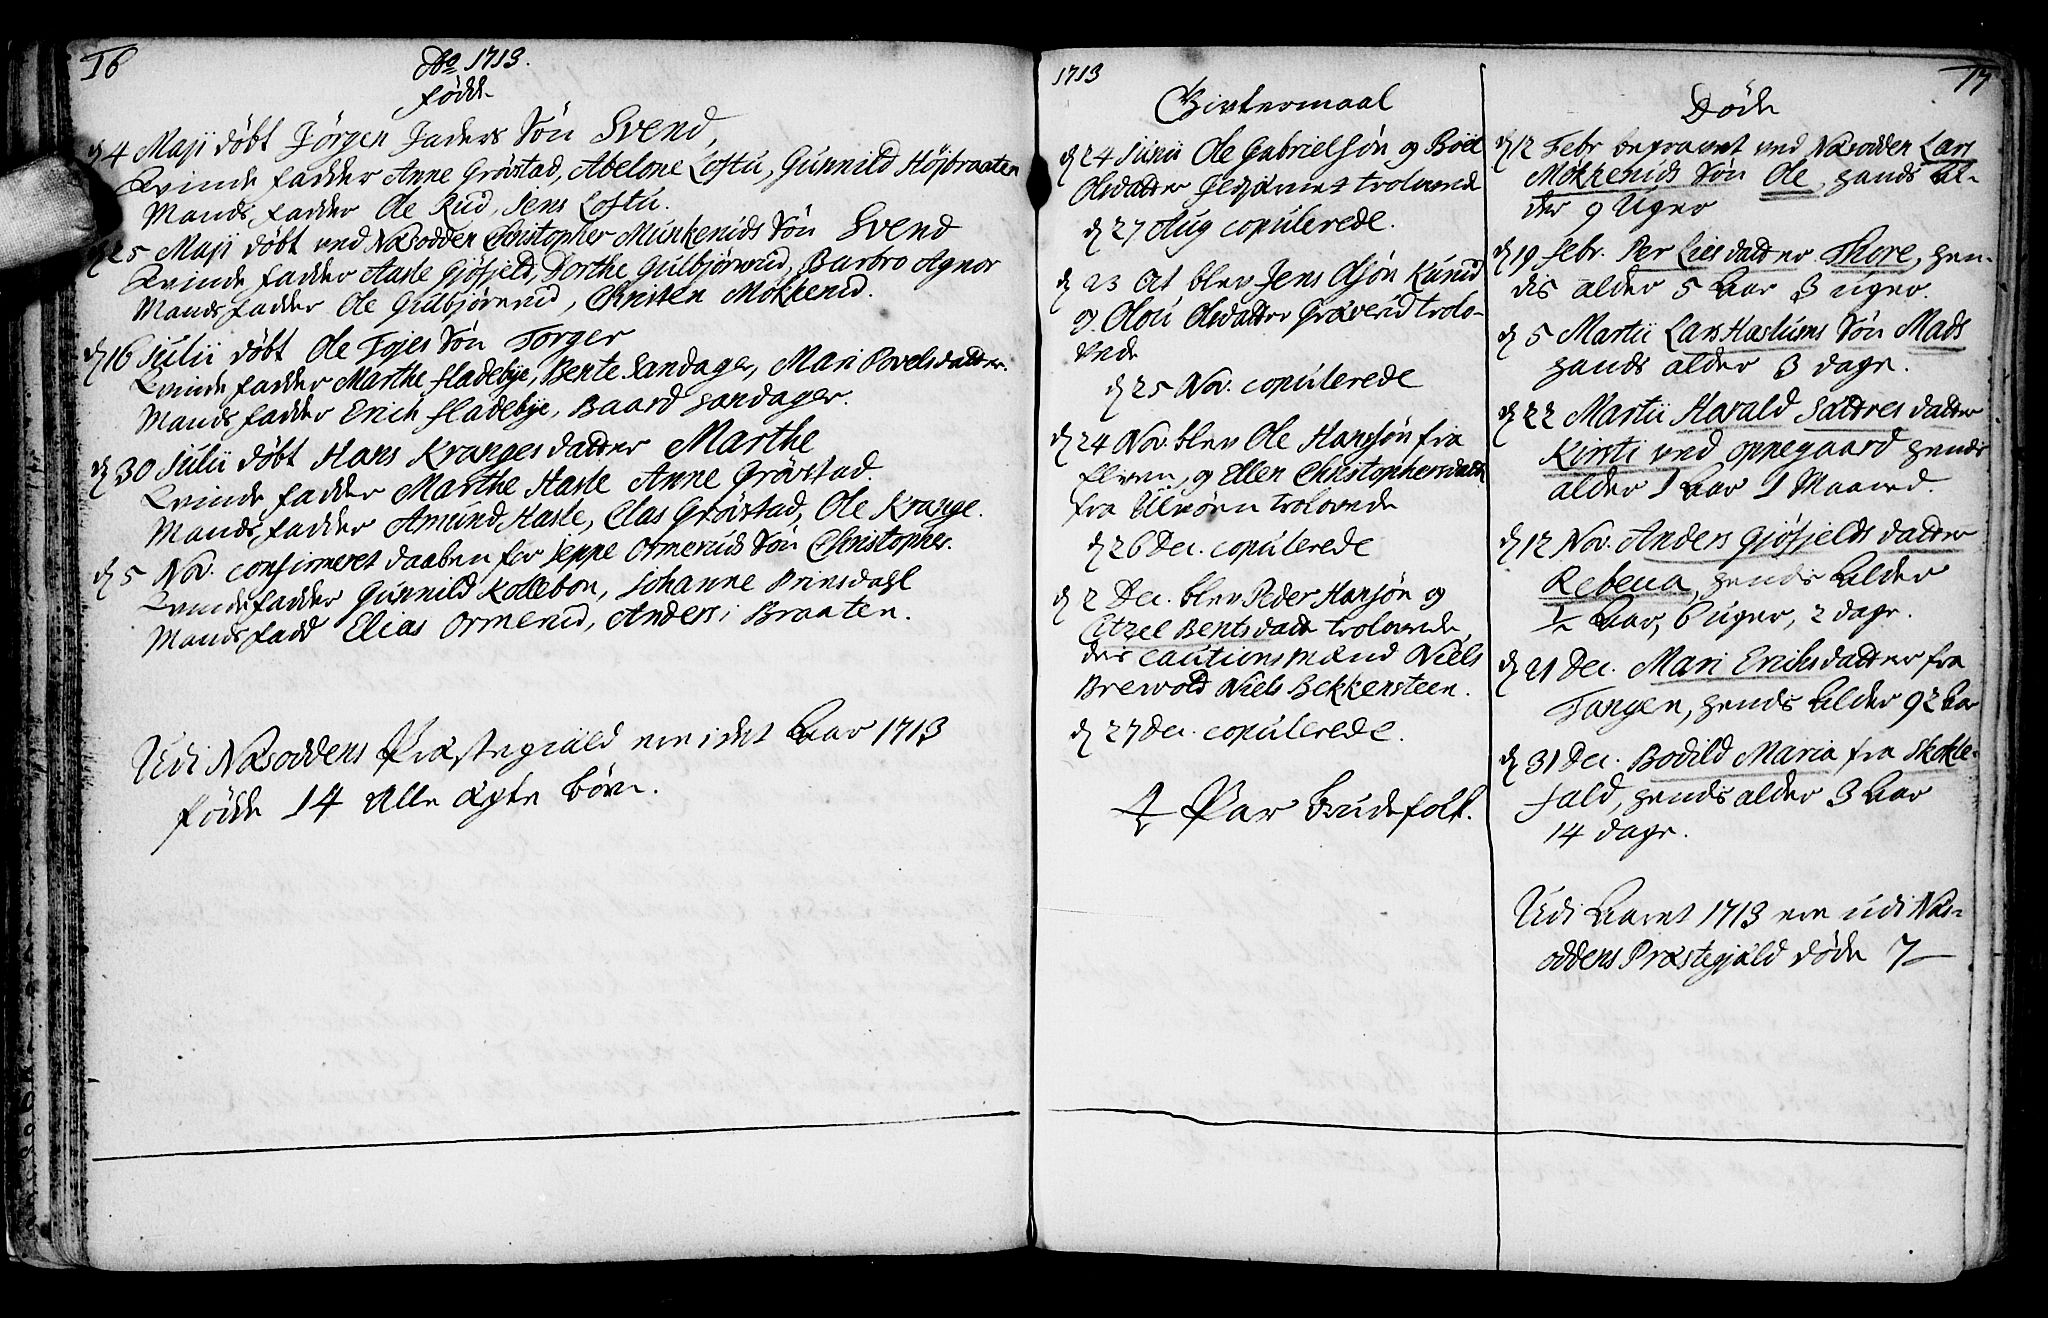 16
Ao 1713.
Födde
d 4 Maji döbt Jörgen Faders Sön Svend,
Qvinde fadder Anne Gröstad, Abelone Loftu, Gunnild Höjbraaten
Mands fadder Ole Rud, Jens Loftu.
d 25 Maji döbt ved Næsodden Christopher Munkeruds Sön Svend
Qvinde fadder Aasle Gjöfjeld, Dorthe Gulbjörnrud, Barbro Agnor
Mands fadder Ole Gulbjörnrud, Christen Mökkerud.
d 16 Julii döbt Ole Tojes Sön Torger
Qvinde fadder Marthe fladebye, Bente Sandager, Mari Povelsdatter.
Mands fadder Erich fladebye, Baard Sandager.
d 30 Julii döbt Hans Kranges datter Marthe
Qvinde fadder Marthe Hasle Anne Gröstad.
Mands fadder Amund Hasle, Clas Gröstad, Ole Krange.
d 5 Nov. confirmeret daaben for Jeppe Ormeruds Sön Christopher.
Qvinde fadder Gunnild Kollebon, Johanne Prinsdahl
Mands fadd Elias Ormerud, Anders i Braaten.
Udi Næsoddens Præstegiæld ere i det Aar 1713
födde 14 Alle ægte börn.
1713
Givtermaal
d 24 Junii Ole Gabrielsön og Boel
Olsdatter trolovede
d 27 Aug copulerede.
d 23 Oct blev Jens Olsön Kurud
og Olou Olsdatter Gröverud trolo-
vede
d 25 Nov. copulerede
d 24 Nov. blev Ole Hansön fra
, og Ellen Christophersdatt
fra Ulvöen trolovede
d 26 Dec. copulerede
d 2 Dec. blev Peder Hansön og
Citzel Bentsdatt trolovede
des cautions mænd Niels
Brevold Niels Bekkensteen.
d 27 Dec. copulerede.
4 Par brudefolk.
17
Döde
d 12 Febr begravet ved Næsodden Lars
Mökkeruds Sön Ole, hands Al-
der 9 Uger
d 19 Febr. Per Lies datter Thore, hen-
dis alder 5 Aar 3 uger.
d 5 Martii Lars Haslums Sön Mads
hands alder 3 dage.
d 22 Martii Harald Sætres datter
Kirsti ved oppegaard hends
alder 1 Aar 1 Maaned.
d 12 Nov. Anders Gjöfjelds datter
Rebecca, hends Alder
½ Aar, 6 uger, 2 dage.
d 21 Dec. Mari Eriksdatter fra
Tangen, hends Alder 92 Aar
d 31 Dec. Bodild Maria fra Skokle-
fald, hends alder 3 Aar
14 dage.
Udi Aaret 1713 ere udi Næs-
oddens Præstegjæld döde 7